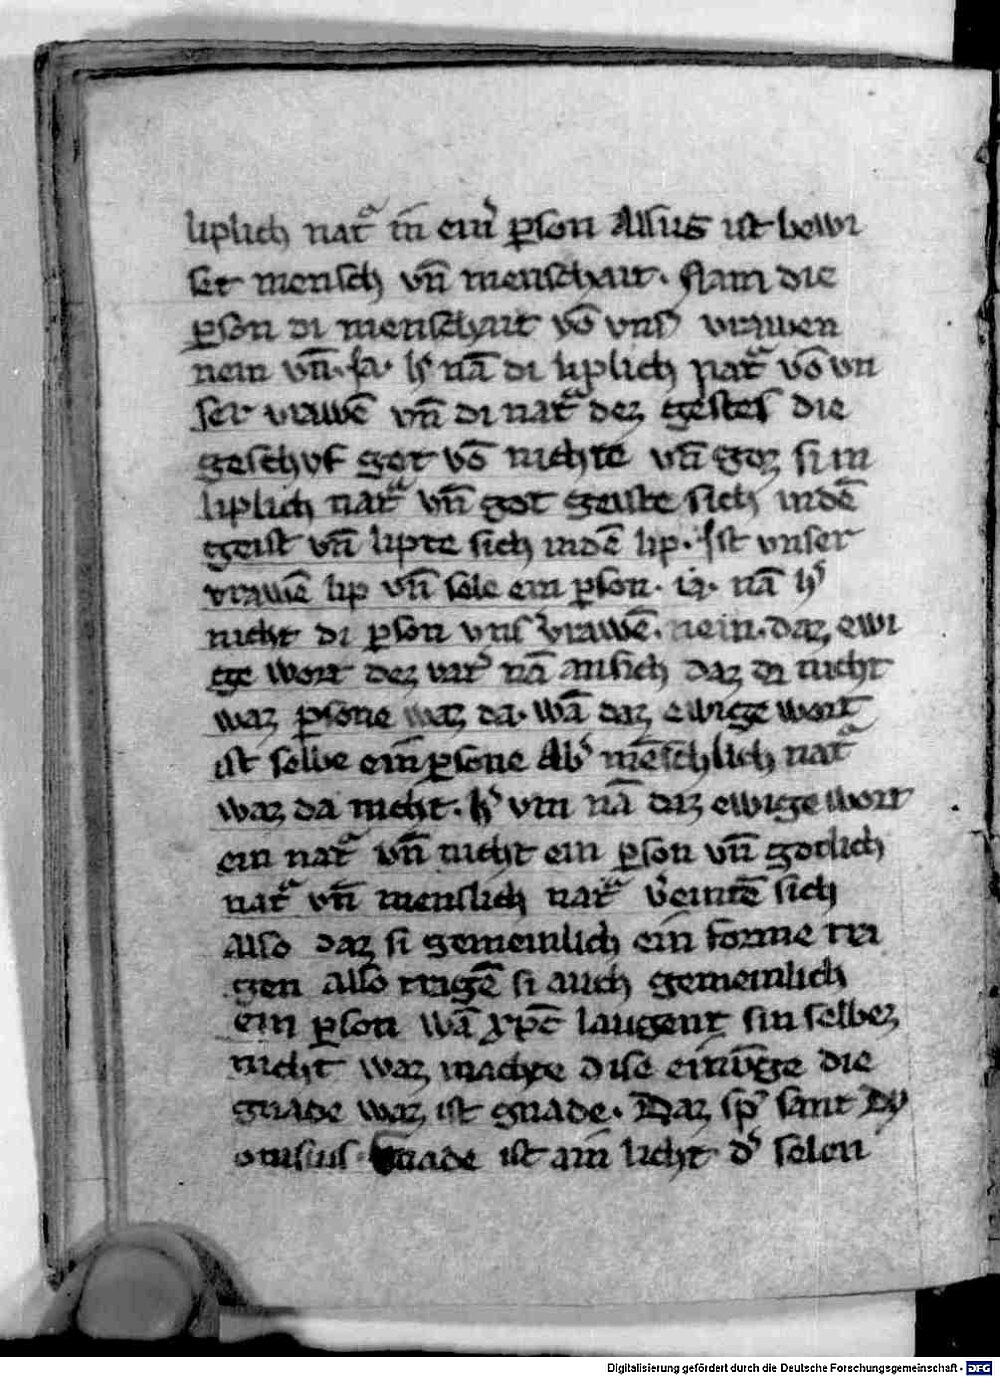 liplich natᷓ in einᷣ ꝑson Alſus iſt bewi
ſet menſch vn̄ menſchait. Nam die
ꝑſon di menſchait vō vnſᷣ vrawen
nein vn̄. ia. hᷣ nā di liplich natᷓ vō vn
ſer vrawē vn̄ di natᷓ dez geſtes die
geſchvf got vō nichte vn̄ goz ſi in
liplich natᷓ vn̄ got geiſte ſich indē
geiſt vn̄ lipte ſich indē lip. Iſt vnſer
vrawē lip vn̄ ſele ein ꝑſon. ia. nā hᷣ
nicht di ꝑſon vnſᷣ vrawē. nein. daz ewi
ge wort dez vatᷣ nā anſich daz di nicht
waz ꝑſone waz da. wā daz ewige wort
iſt ſelbe ein ꝑſone Abᷣ mēſchlich natᷓ
waz da nicht. hᷣ vm nā daz ewige wort
ein natᷓ vn̄ nicht ein ꝑſon vn̄ gotlich
natᷓ vn̄ menſlich natᷓ vᷣeintē ſich
Alſo daz ſi gemeinlich ein forme tra
gen Alſo tragē ſi auch gemeinlich
ein ꝑſon wā xpc̄ laugent ſin ſelbez
nicht waz machte diſe einvᷣge die
gnade waz iſt gnade. Daz ſpᷣ ſant Dy
oniſius. Gnade iſt ain licht dᷣ ſelen
Digitalisierung gefördert durch die Deutsche Forschungsgemeinschaft - DFG